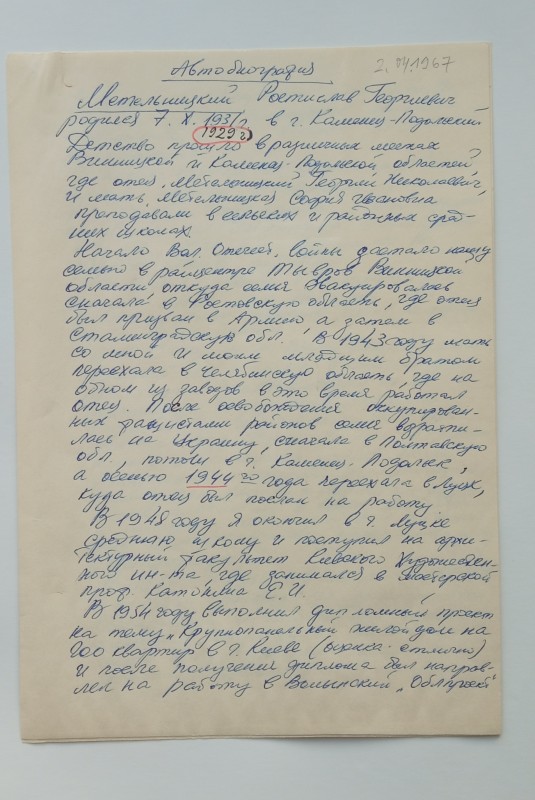 Автобиография
2.04.1967
Метельницкий Ростислав Георгиевич
родился 7. X. 1931г. в г. Каменец-Подольский
1929 г.
Детство прошло в различных местах
Винницкой и Каменец-Подольской областей,
где отец, Метельницкий Георгий Николаевич,
и мать, Метельницкая София Ивановна
преподавали в сельских и районных сред-
них школах.
Начало Вел. Отечест. войны застало нашу
семью в райцентре Тывров Винницкой
области откуда семья эвакуировалась
сначала в Ростовскую область, где отец
был призван в Армию а затем в
Сталинградскую обл. В 1943 году мать
со мной и моим младшим братом
переехала в Челябинскую область, где на
одном из заводов в это время работал
отец. После освобождения оккупирован-
ных фашистами районов семья возврати-
лась на Украину, сначала в Полтавскую
обл, потом в г. Каменец-Подольск,
а осенью 1944 го года переехала в Луцк,
куда отец был послан на работу.
В 1948 году я окончил в г. Луцке
среднюю школу и поступил на архи-
тектурный факультет Киевского Художествен-
ного ин-та, где занимался в мастерской
проф. Катонина Е.И.
В 1954 году выполнил дипломный проект
на тему „Крупнопанельный жилой дом на
200 квартир в г. Киеве (оценка - отлично)
и после получения диплома был направ-
лен на работу в Волынский „Облпроект"